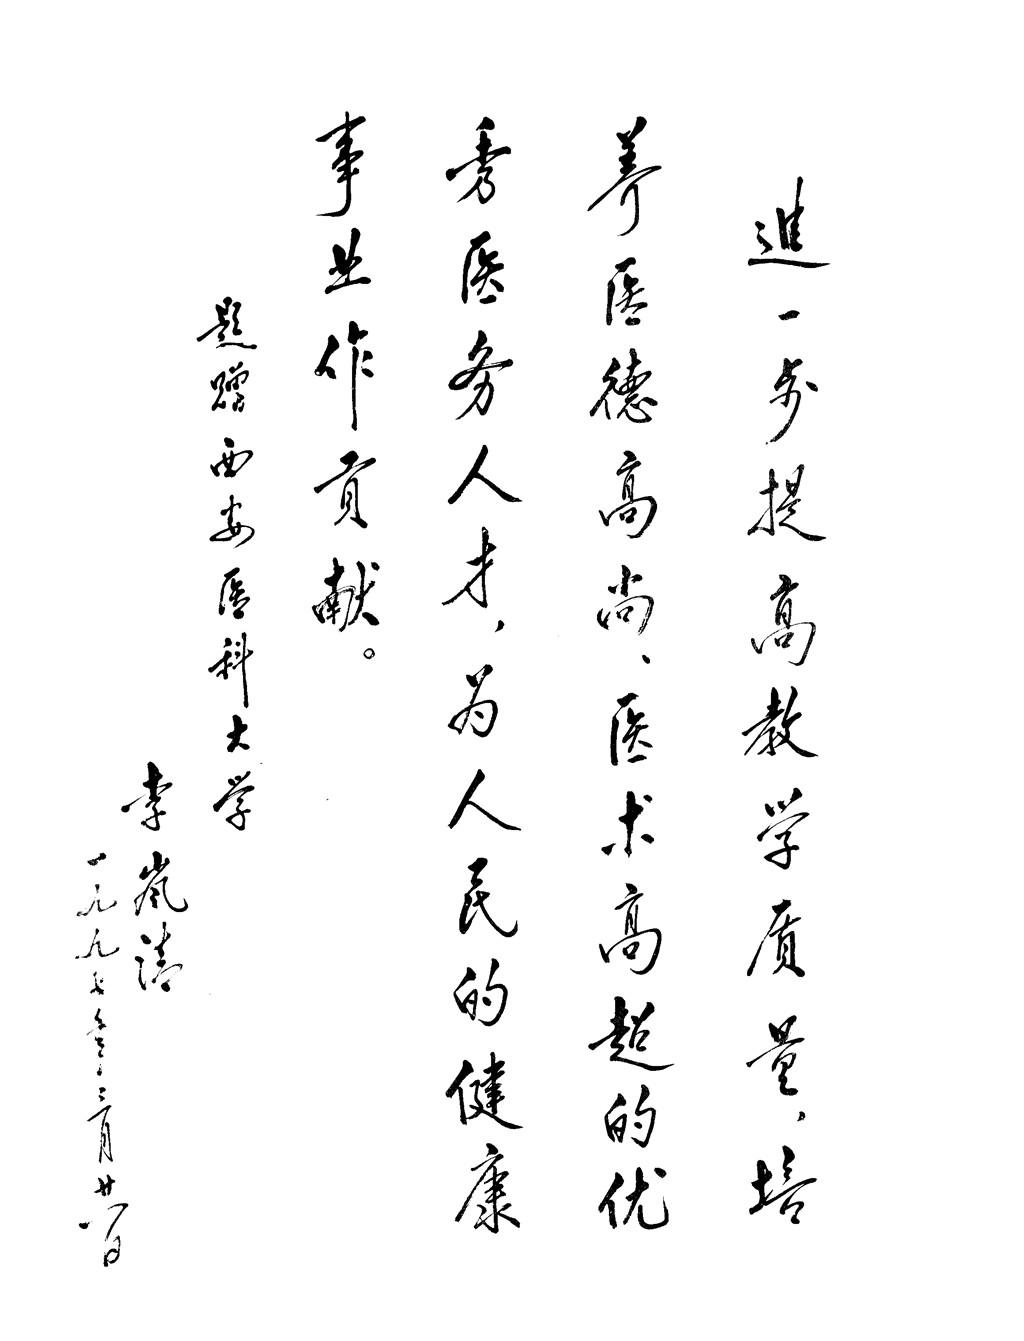 進一步提高教学质量，培
养医德高尚、医术高超的优
秀医务人才，为人民的健康
事业作贡献。
题赠西安医科大学
李岚清
一九九七年二月廿八日